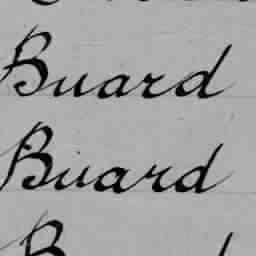 Buard
Buard